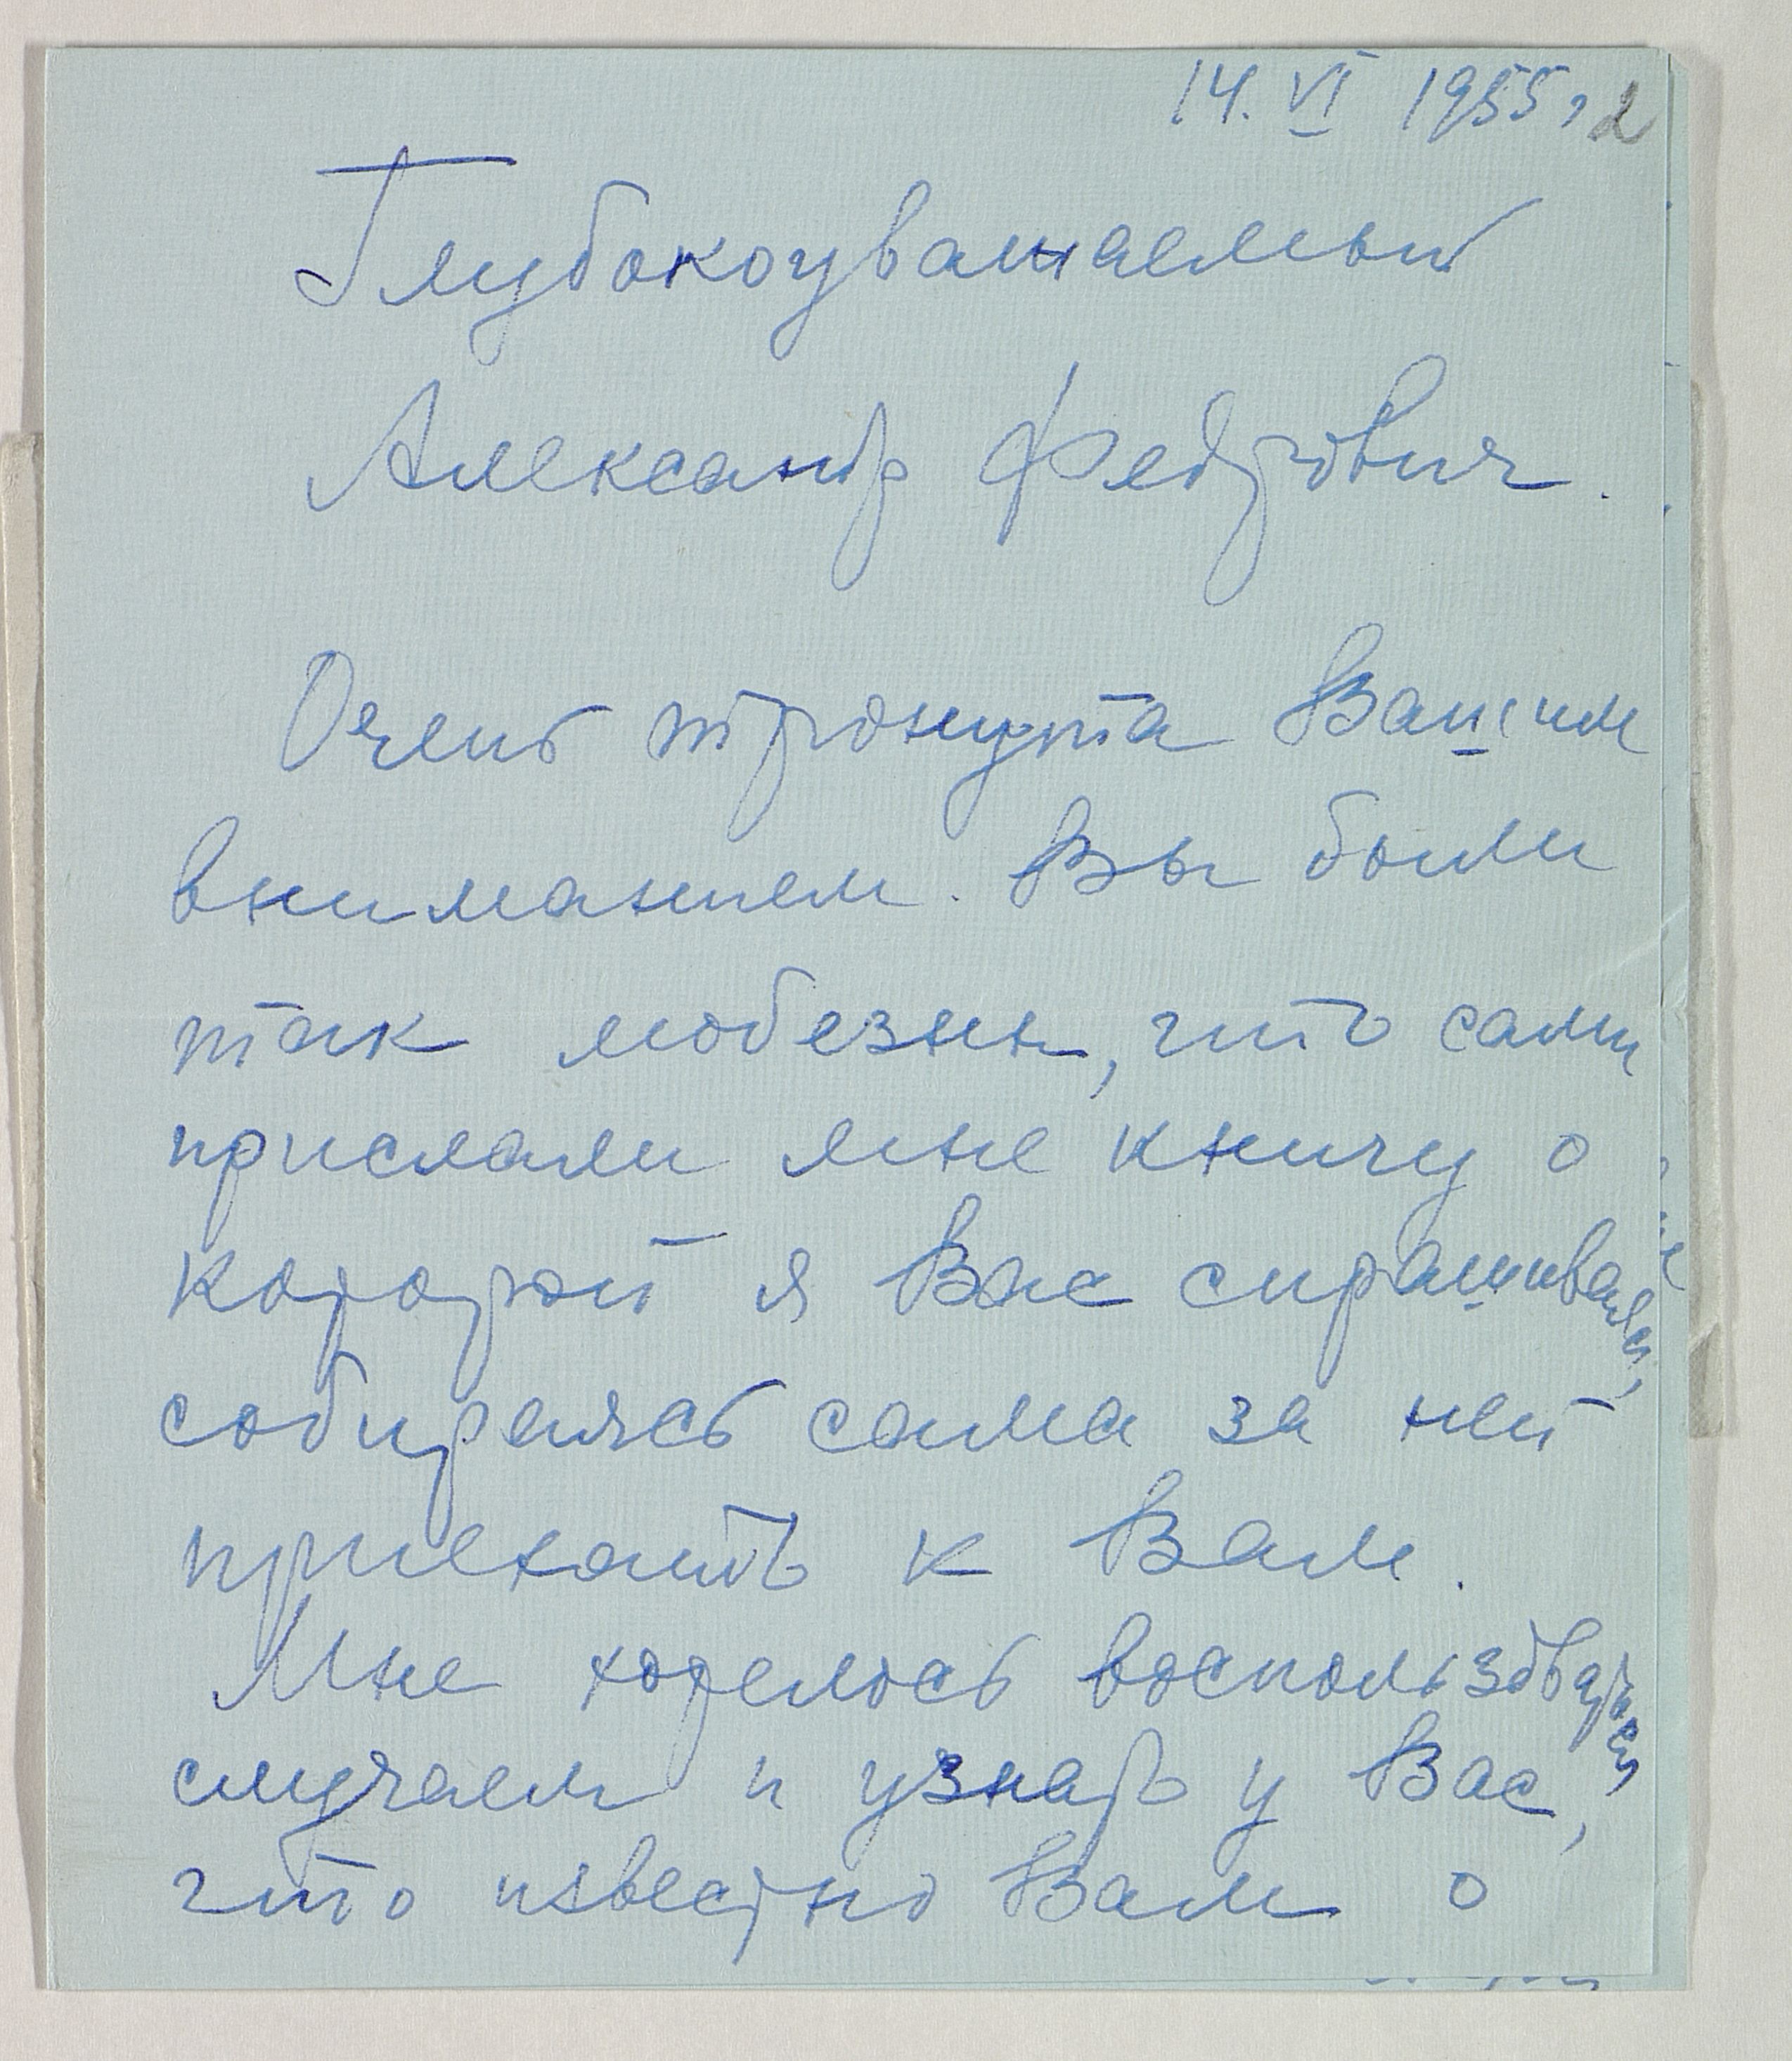 14. VI 1955 г. 2
Глубокоуважаемый
Александр Федорович.
Очень тронута Вашим
вниманием. Вы были
так любезны, что сами
прислали мне книгу о
которой я Вас спрашивала,
собираясь сама за ней
приехать к Вам.
Мне хотелось воспользоваться
случаем и узнать у Вас,
что известно Вам о